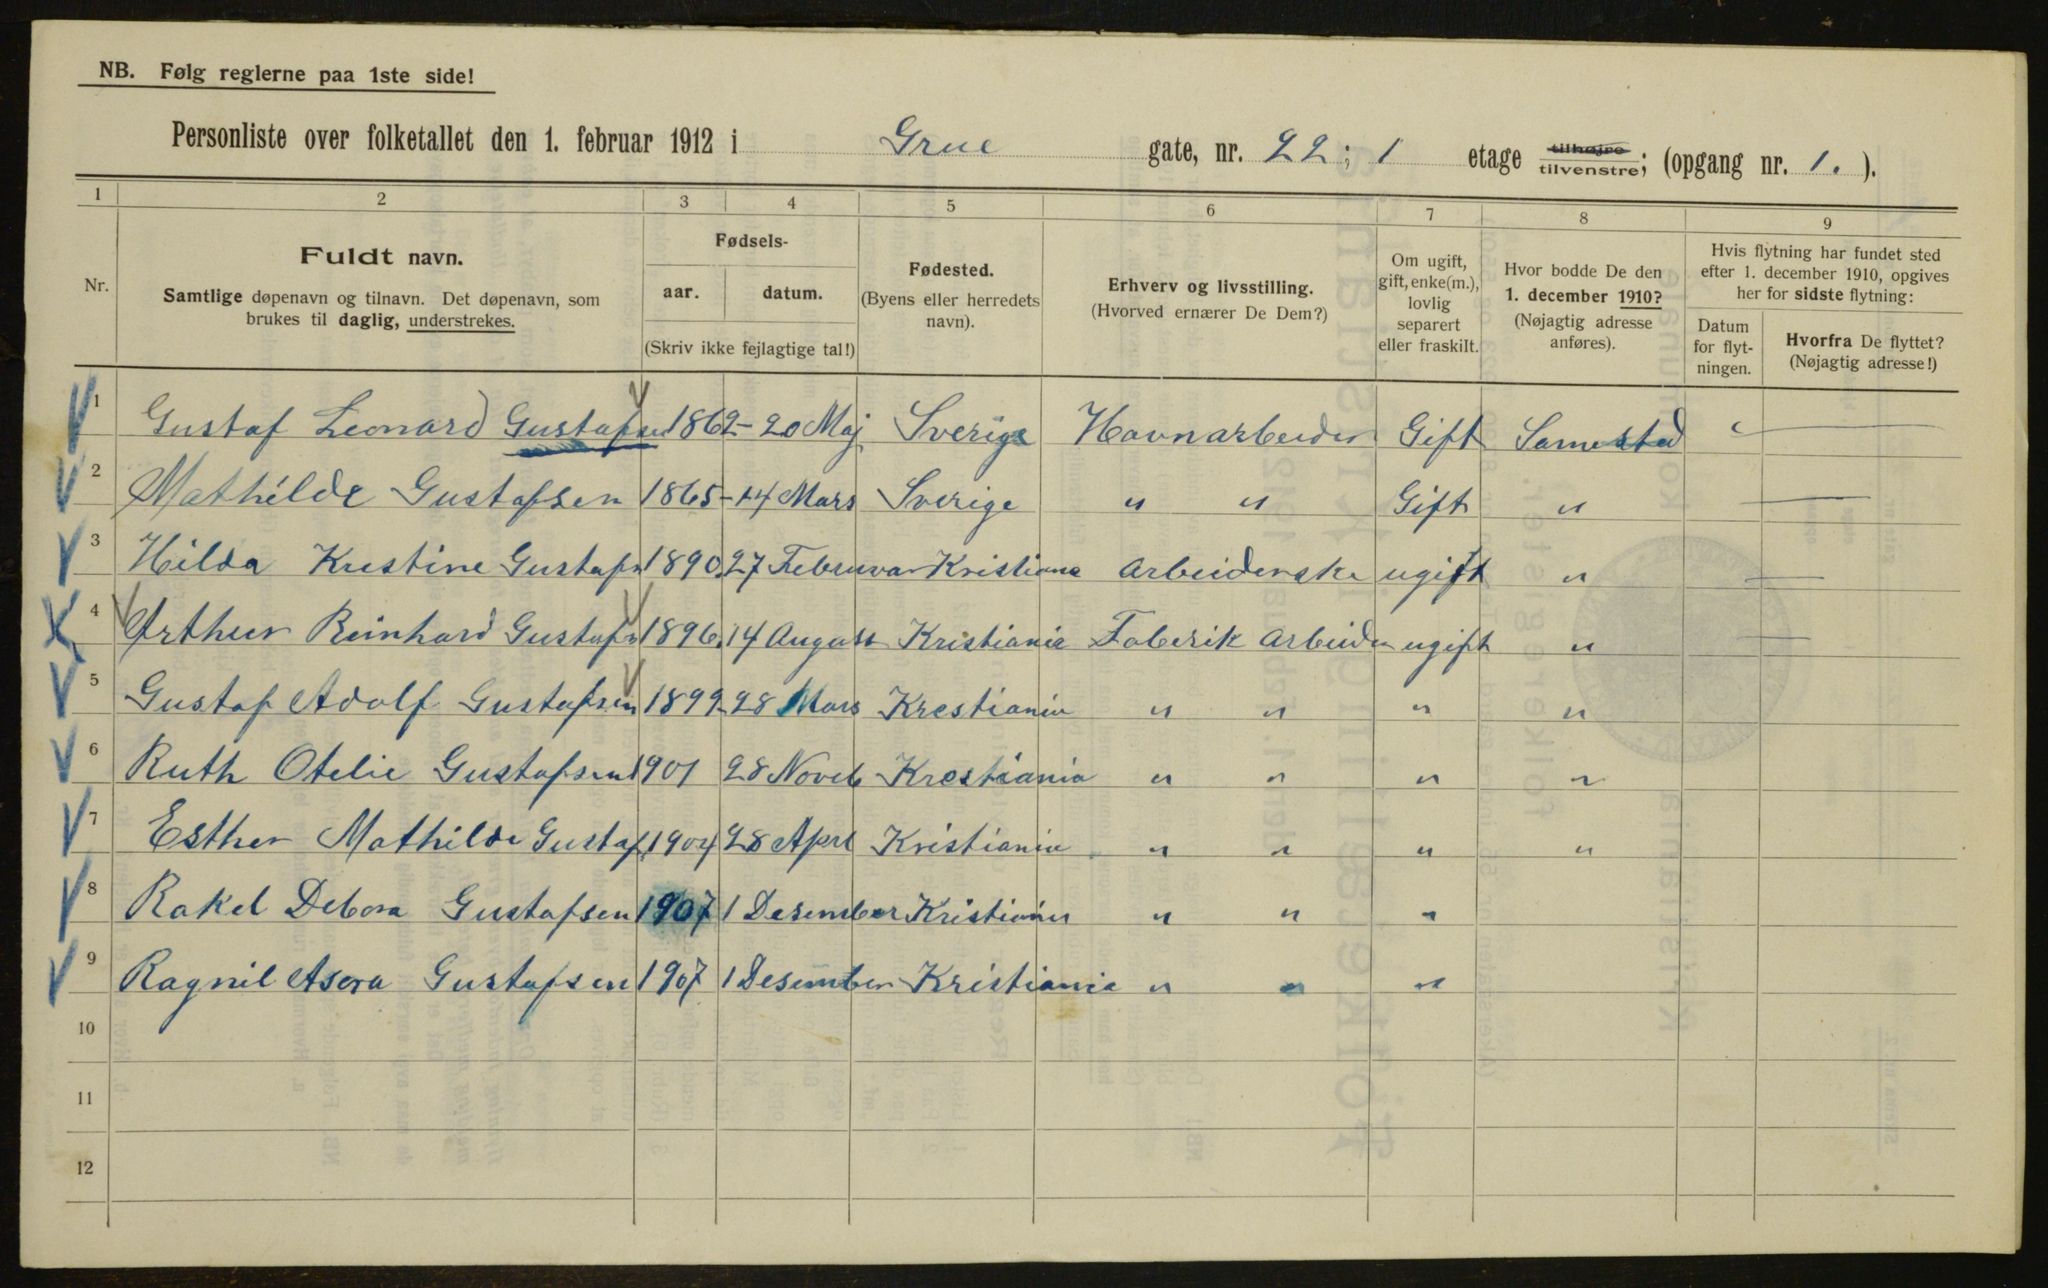 NB. Følg reglerne paa 1ste side!
Personliste over folketallet den 1. februar 1912 i Grue gate, nr. 22; 1 etage tilhøjre tilvenstre; (opgang nr. 1.).
1 2 3 4 5 6 7 8 9
Nr.
Fuldt navn.
Samtlige døpenavn og tilnavn. Det døpenavn, som
brukes til daglig, understrekes.
Fødsels-
aar. datum.
(Skriv ikke fejlagtige tal!)
Fødested.
(Byens eller herredets
navn).
Erhverv og livsstilling.
(Hvorved ernærer De Dem?)
Om ugift,
gift, enke(m.),
lovlig
separert
eller fraskilt.
Hvor bodde De den
1. december 1910?
(Nøjagtig adresse
anføres).
Hvis flytning har fundet sted
efter 1. december 1910, opgives
her for sidste flytning:
Datum
for flyt-
ningen.
Hvorfra De flyttet?
(Nøjagtig adresse!)
1 Gustaf Leonard Gustafsen 1862 - 20 Maj Sverige Havnarbeider Gift Samested
2 Mathilde Gustafsen 1865 - 14 Mars Sverige " " Gift "
3 Hilda Kristine Gustafs 1890 27 Februvar Kristiana Arbeiderske ugift "
4 Arthur Reinhard Gustafs 1896 14 August Kristiania Faberik Arbeider ugift "
5 Gustaf Adolf Gustafsen 1899 - 28 Mars Krestiania " " " "
6 Ruth Otelie Gustafsen 1901 28 Noveb Krestiania " " " "
7 Esther Mathilde Gustaf 1904 28 Aprl Kristiania " " " "
8 Rakel Debora Gustafsen 1907 1 Desember Kristiania " " "
9 Ragnil Asora Gustafsen 1907 1 Desember Kristiania " " "
10
11
12